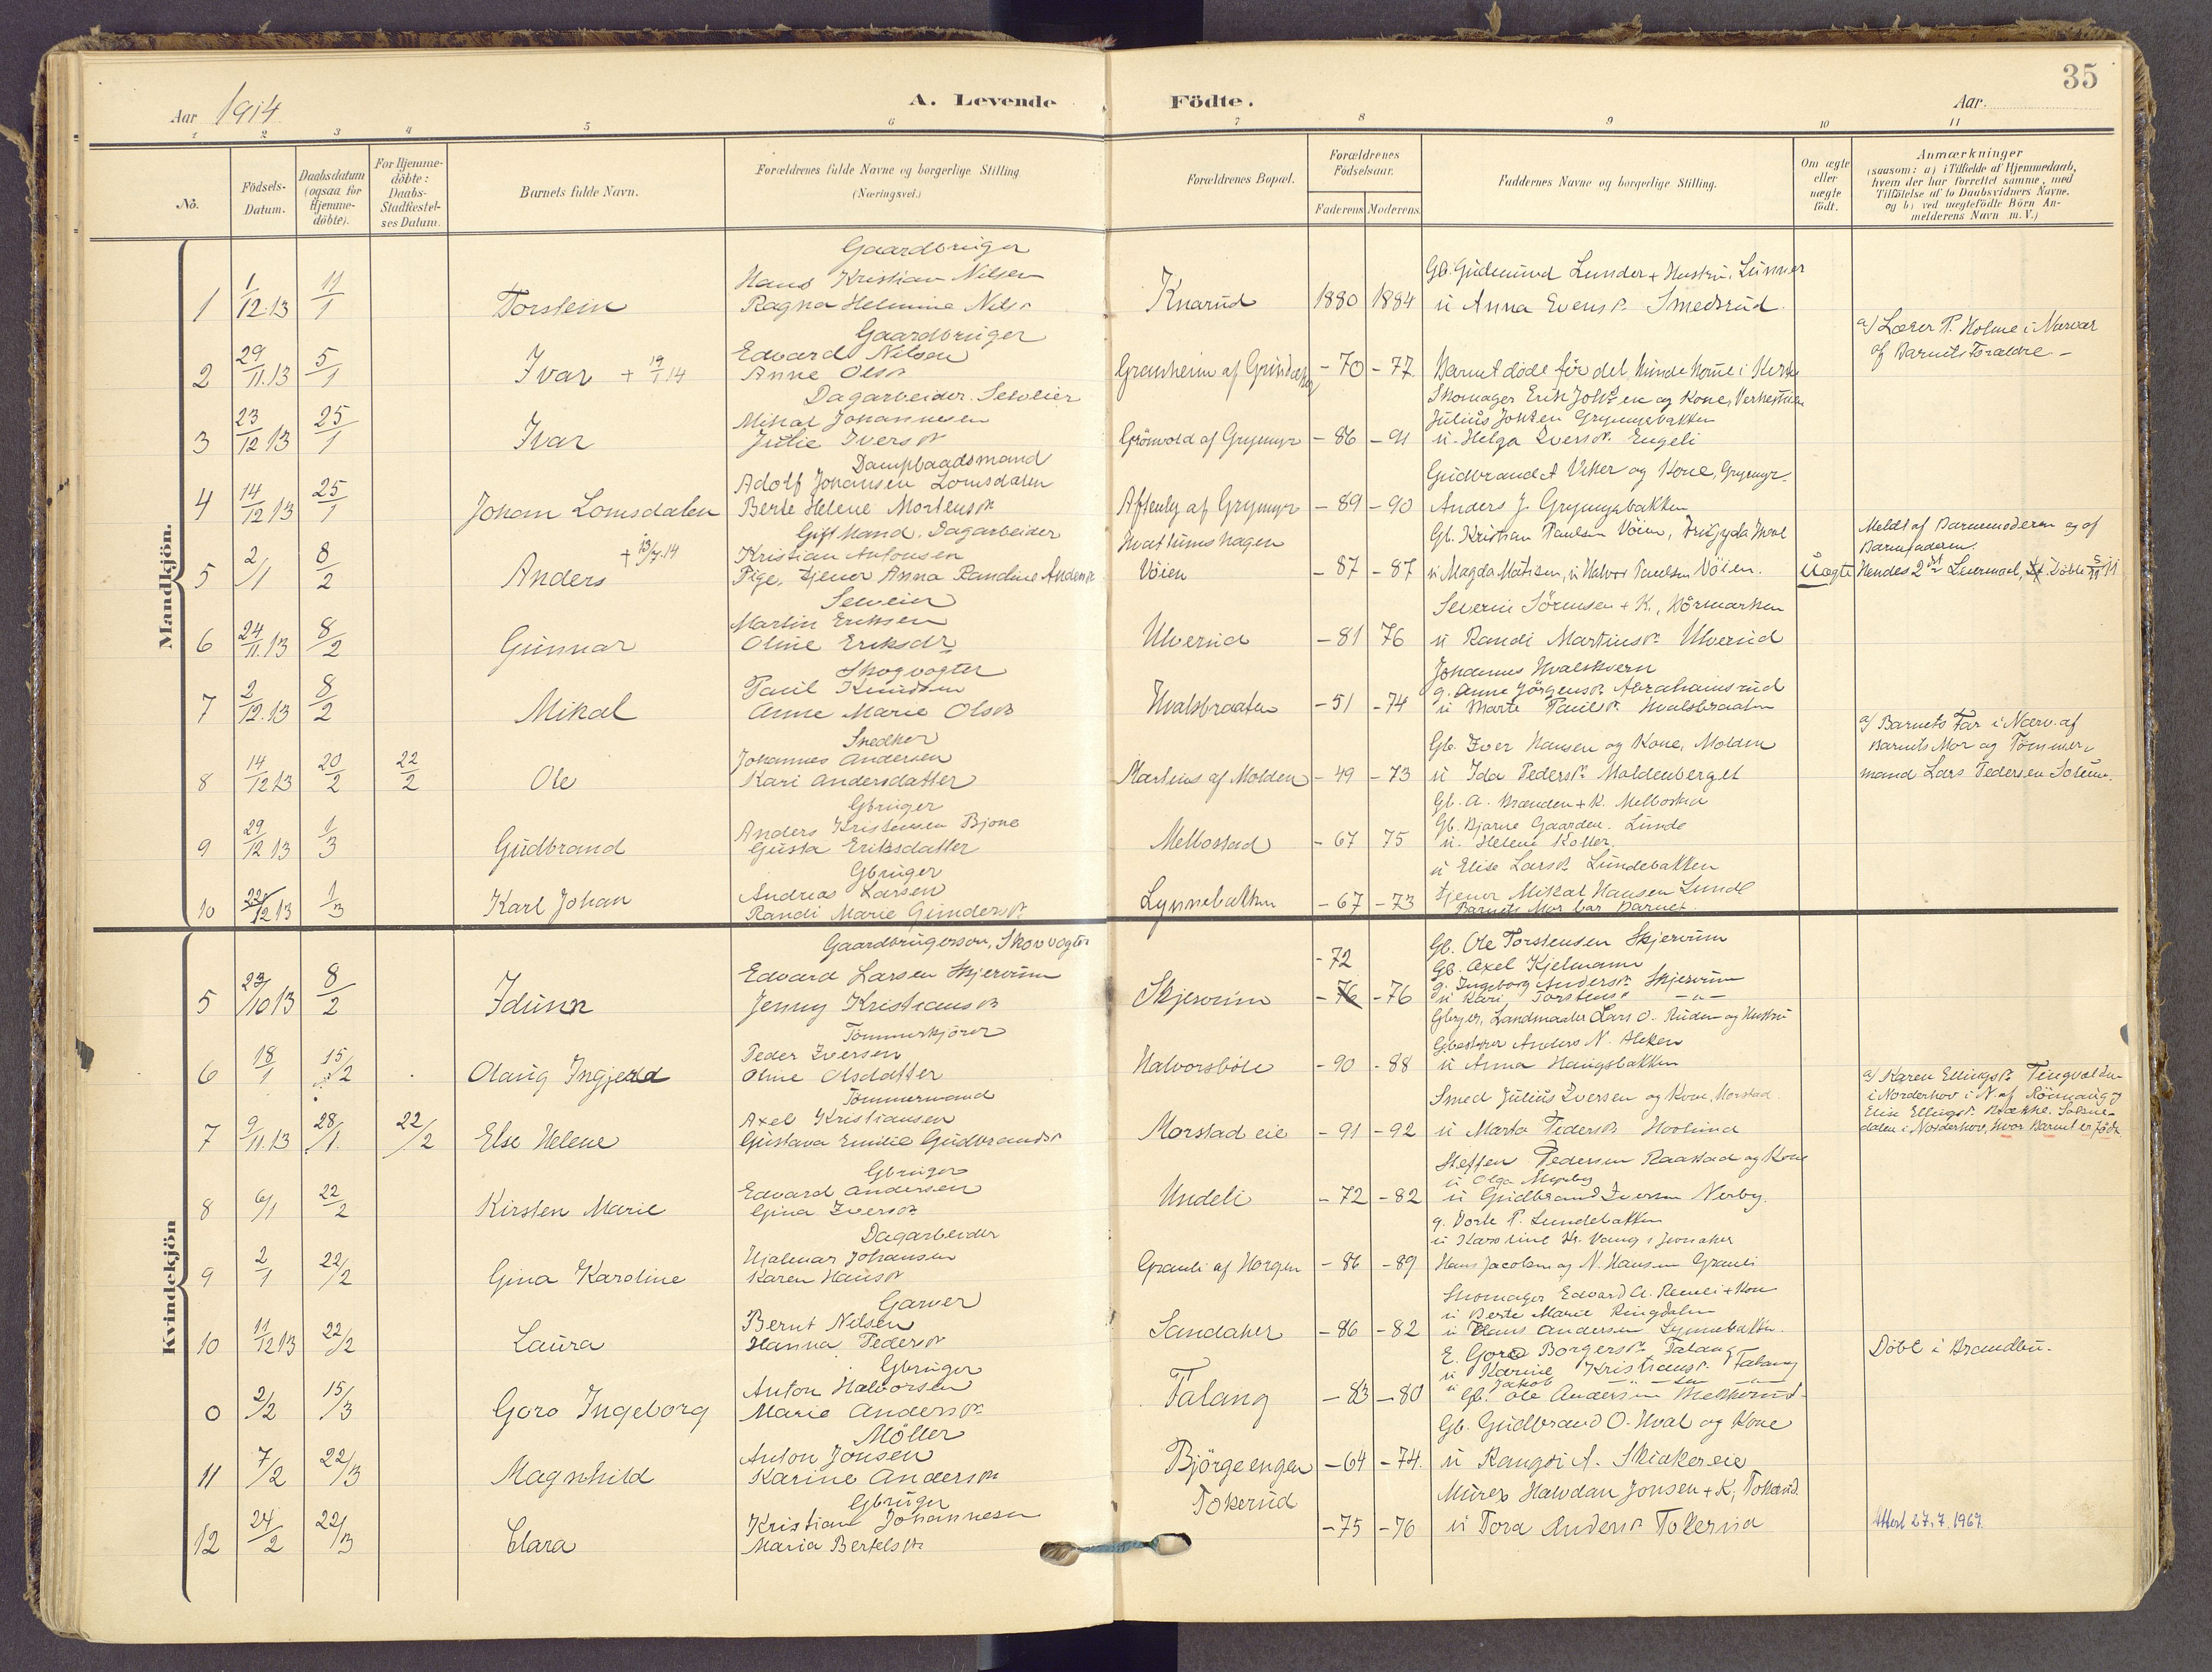 35
Aar 1914
A. Levende Födte.
Aar.
1 2 3 4 5 6 7 8 9 10 11
No.
Födsels-Datum.
Daabsdatum (ogsaa for Hjemme-döbte).
For Hjemme-döbte: Daabs-Stadfæstel-ses Datum.
Barnets fulde Navn.
Forældrenes fulde Navne og borgerlige Stilling (Næringsvei.)
Forældrenes Bopæl.
Forældrenes Födselsaar.
Faderens Moderens
Faddernes Navne og borgerlige Stilling.
Om ægte eller uægte födt.
Anmærkninger
(saasom: a) i Tilfælde af Hjemmedaab, hvem der har forrettet samme, med Tilföielse af to Daabsvidners Navne, og b) ved uægtefödte Börn Anmelderens Navn m. V.)
Mandkjön.
Gaardbruger
Gb. Gudmund Lunder + Hustru, Lunner
Hans Kristian Nilsen
1 1/12.13 11/1 Torstein Ragna Helmine Nilsdr Knarud 1880 1884 u Anna Evensdr. Smedsrud.
Gaardbruger
a) Lærer P. Holme i Nærvær
Edvard Nilsen
af Barnets Forældre.-
2 29/11.13 5/1 Ivar + 19/1 14 Anne Olsdr Granheim af Grindaker -70 -77 Barnet døde før det kunde komme i Kirke
Dagarbeider. Selveier
Skomager Erik Johsen og Kone, Verkestuen
Mikal Johannesen
Julius Johsen Grymyrbakken
3 23/12 13 25/1 Ivar Julie Iversdr Grönvold af Grymyr -86 -91 u. Helga Iversdr. Engeli
Dampbaadsmand
Adolf Johansen Lomsdalen
Gudbrand A Vihler og Kone, Grymyr.
4 14/12 13 25/1 Johan Lomsdalen Berte Helene Mortensdr Aftenly af Grymyr -89 -90 Anders J. Grymyrbakken
Gift Mand. Dagarbeider
Hvattumshagen
Gb. Kristian Paulsen Vöien,
Meldt af Barnemoderen og af
Kristian Antonsen
Barnefaderen.
5 2/1 8/2 Anders + 13/7.14 Pige, tjener Anna Randine Andersdr Vöien -87 -87 u. Magda Matisen, u Halvor Paulsen Vöien. Uægte Hendes 2det Leiermaal,
Selveier
Martin Eriksen
Severin Sörensen + K.,
6 24/11.13 8/2 Gunnar Oline Eriksdr Ulverud -81 76 u Randi Martinsdr. Ulverud
Skogvogter
Johannes Hvalskvern
Paul Knudsen
g. Anne Jörgensdr. Abrahamsrud
7 2/12.13 8/2 Mikal Anne Marie Olsdr Hvalsbraaten -51 -74 u Marte Paulsdr. Hvalsbraaten
Snedker
a) Barnets Far i Nærv. af
Johannes Andersen
Gb. Iver Hansen og Kone, Molden
Barnets Mor og Tömmer-
8 14/12 13 20/2 22/2 Ole Kari Andersdatter Marlius af Molden -49 -73 u Ida Pedersdr. Moldenberget mand Lars Pedersen Solum.
Gbruger
Gb. A. Brænden + K. Melbostad
Anders Kristensen Bjone
Gb. Bjarne Gaarden. Lunde
9 29/12 13 1/3 Gudbrand Gusta Eriksdatter Melbostad -67 75 u. Helene Koller
Gbruger
u Elise Larsdr Lundebakken
Andreas Larsen
tjener Mikal Hansen Lunde
10 22/12 13 1/3 Karl Johan Randi Marie Gundersdr. Lynnebakken -67 -73 Barnets Mor bar Barnet.
Kvindekjön
Gaardbrugersön, Skovvogter
-72 Gb. Ole Torstensen Skjervum
Edvard Larsen Skjervum
Gb. Axel Kjelmann
g. Ingeborg Andersdr. Skjervum
5 23/10 13 8/2 Idunn Jenny Kristiansdr Skjervum -76 -76 u Kari Torstensdr -"-
Tömmerkjörer
Gbruger, Landmaaler Lars O. Ruden og Hustru
Peder Iversen
Gbestyrer Anders N. Aleken
6 18/1 15/2 Olaug Ingjerd Oline Olsdatter Halvorsböle -90 -88 u Anna Haugsbakken
Tömmermand
a) Karen Ellingsdr. Tingvolden
Axel Kristiansen
Smed Julius Iversen og Kone, Morstad.
i Norderhov i N. af Rönnaug og
Elise Ellingsdr.
7 9/11.13 28/1. 22/2 Else Helene Gustava Emilie Gudbrandsdr Morstad eie -91 -92 u Marta Pedersdr. dalen i Norderhov, hvor Barnet er född
Gbruger
Steffen Pedersen Raastad og Kone
Edvard Andersen
u Olga
8 6/1 22/2 Kirsten Marie Gina Iversdr Undeli -72 -82 u Gudbrand Iversen Nerby.
Dagarbeider
g. Dorte P. Lundebakken
Hjalmar Johansen
u Karoline H. Vang i Jevnaker
9 2/1 22/2 Gina Karoline Karen Hansdr Granli af Horgen -86 -89 Hans Jacobsen og N. Hansen Granli
Garver
Skomager Edvard A. + Kone
Bernt Nilsen
u Berte Marie Ringdalen
10 11/12 13 22/2 Laura Hanna Pedersdr Sandaker -86 -82 u Hans Andersen Lynnebakken.
Döbt i Brandbu.
Gbruger
E. Goro Borgersdr. Falang
Anton Halvorsen
u Karine Kristiansdr. Falang
u Jakob
0 2/2 15/3 Goro Ingeborg Marie Andersdr. Falang -83 -80 Gb. Ole Andersen
Möller
Gb. Gudbrand O. Hval og Kone
Anton Jonsen
11 7/2 22/3 Magnhild Karine Andersdr Björgeengen -64 -74. u Rangdi A. Skiakereie
Gbruger
Tokerud
Murer Halvdan Jonsen + K, Tokerud.
Kristian Johannesen
12 24/2 22/3 Clara Maria Bertelsdr. -75 -76 u Tora Andersdr. Tokerud
Attest 27.7.1967.